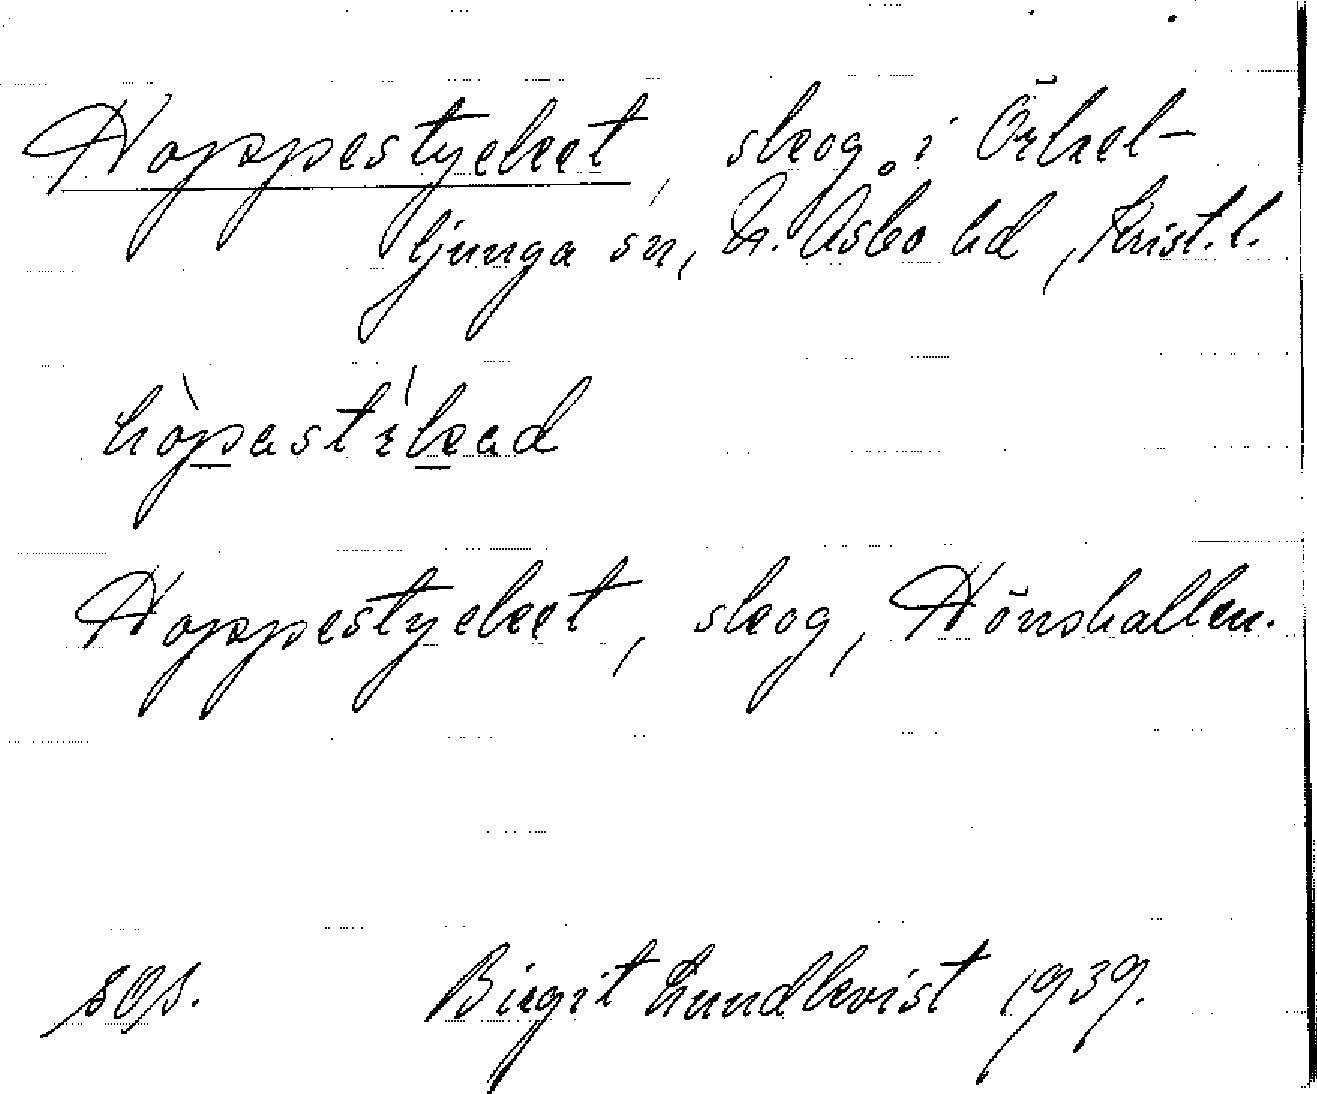 Hoppestycket, skog i Örkel-
ljunga sn, N. Åsbo hd, Krist. l.
hòpastỳkad
Hoppestycket, skog, Hönshallen.
Birgit Lundkvist 1939.